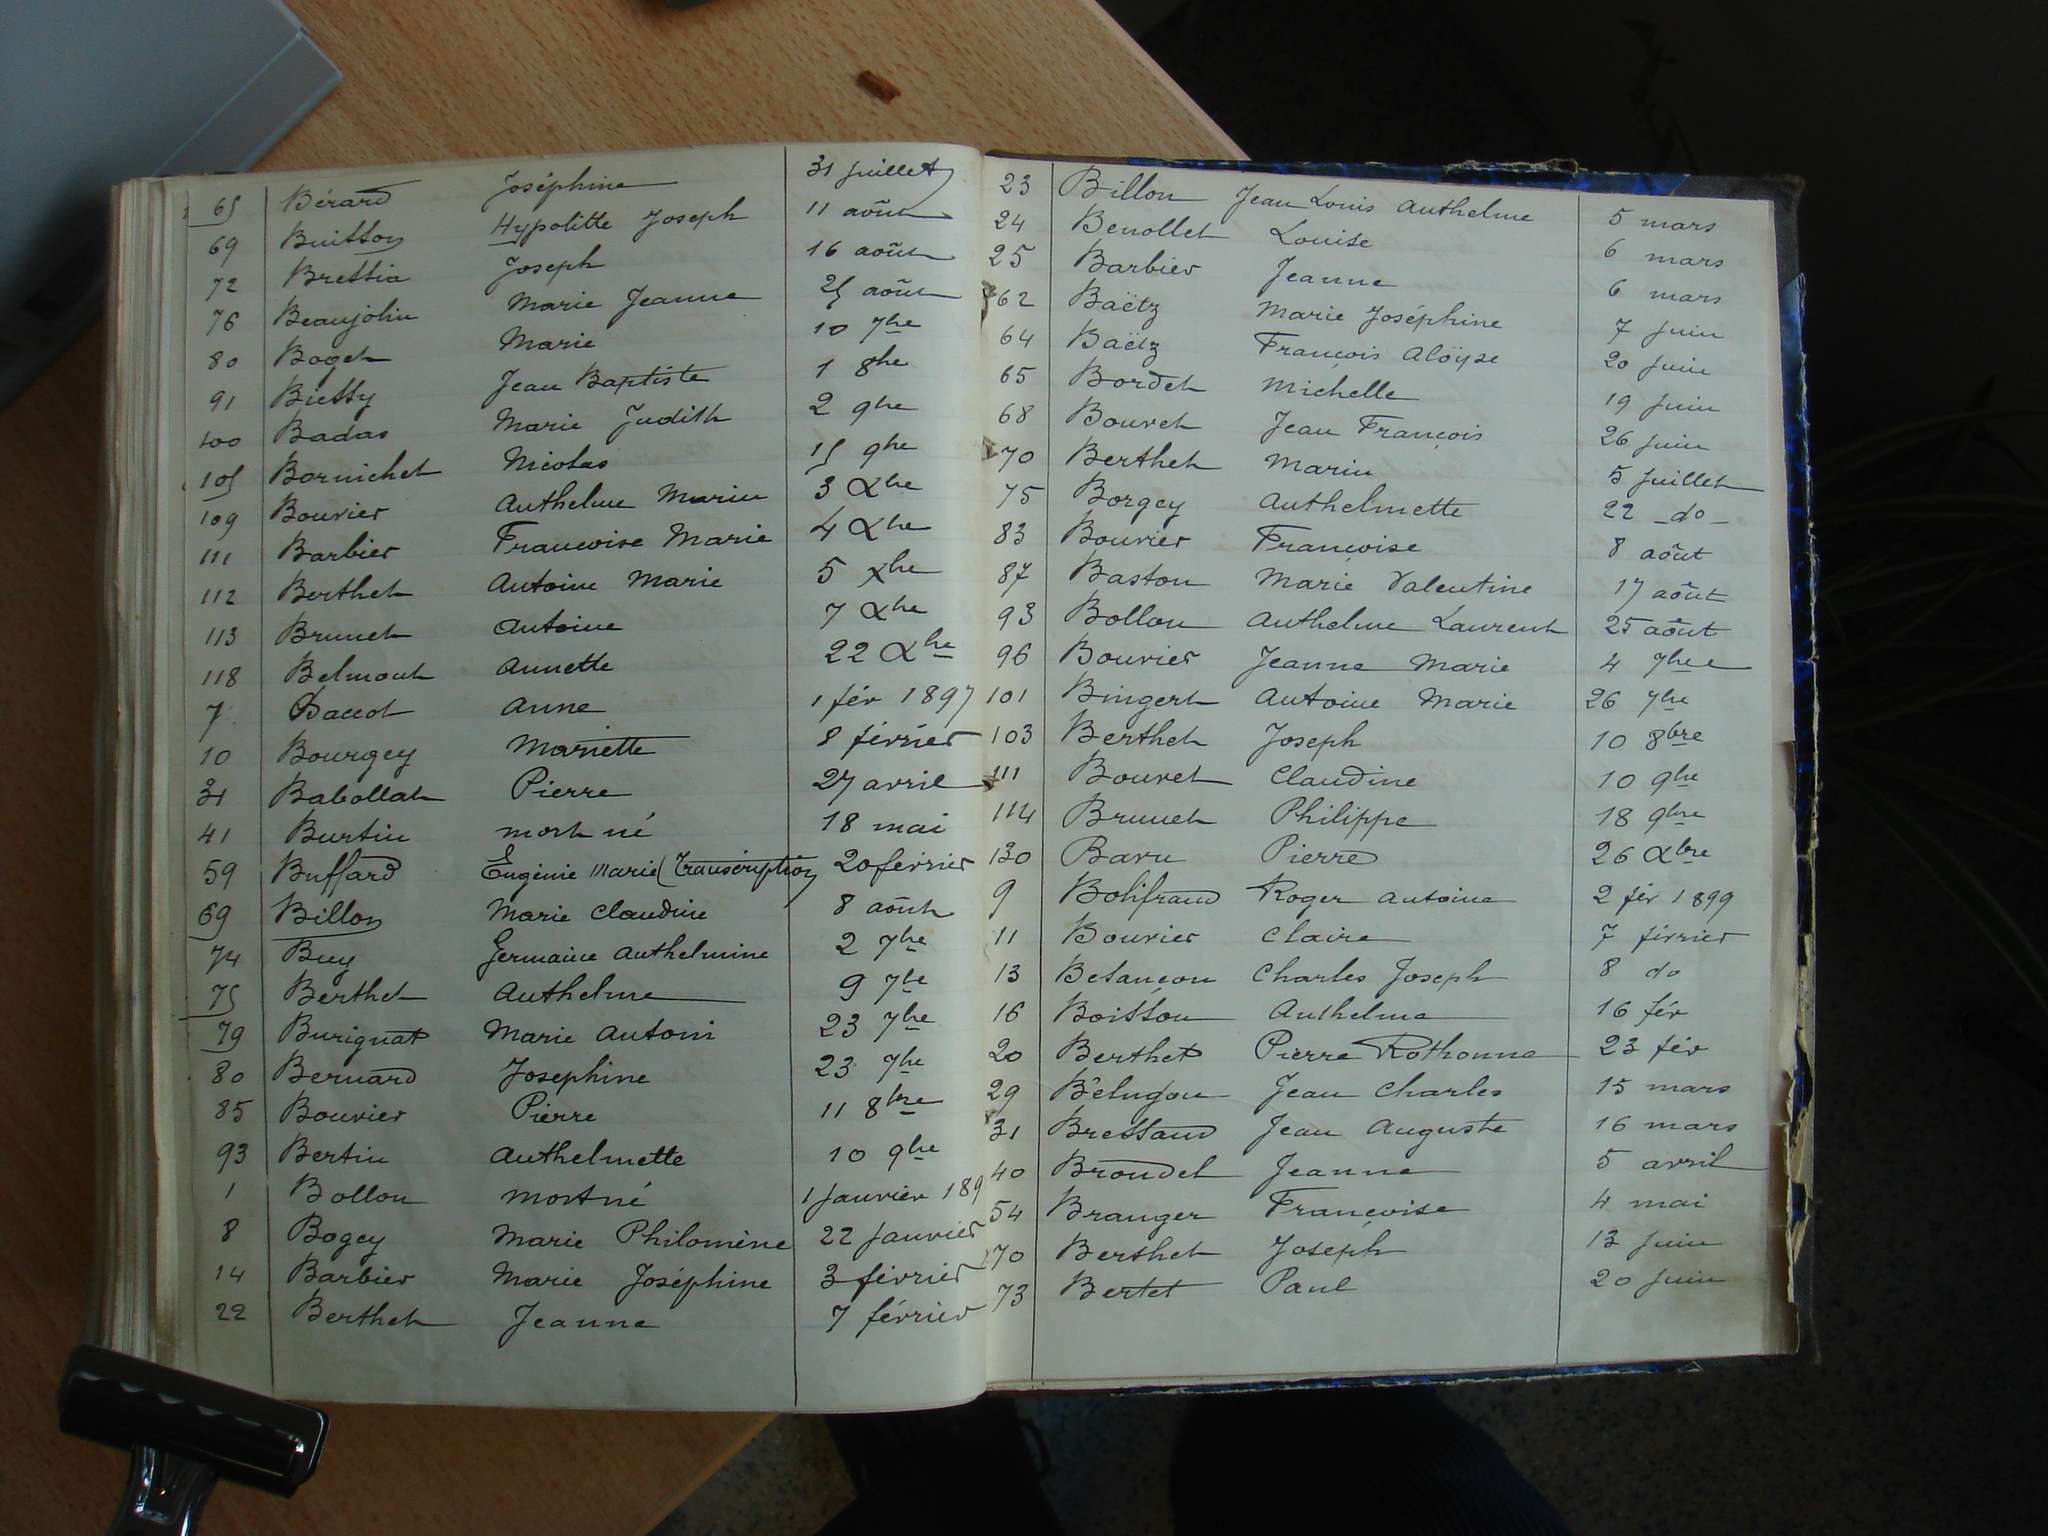 65 Bérard Joséphine 31 Juillet
69 Buisson Hypolitte Joseph 11 août
72 Bressia Joseph 16 août
76 Beaujolin Marie Jeanne 25 août
80 Boget Marie 10 7bre
91 Biessy Jean Baptiste 1 8bre
100 Badas Marie Judith 2 9bre
105 Bornichet Nicolas 15 9bre
109 Bouvier Anthelme Marin 3 Xbre
111 Barbier Francoise Marie 4 Xbre
112 Berthet Antoine Marie 5 Xbre
113 Brunet Antoine 7 Xbre
118 Belmont Annette 22 Xbre
7 Baccot Anne 1 fév 1897
10 Bourgey Mariette 8 février
31 Babollat Pierre 27 avril
41 Burtin mort né 18 mai
59 Buffard Eugénie Marie (Transcription) 20 février
69 Billon Marie Claudine 8 août
74 Buy Germaine Anthelmine 2 7bre
75 Berthet Anthelme 9 7bre
79 Burignat Marie Antoni 23 7bre
80 Bernard Josephine 23 7bre
85 Bouvier Pierre 11 8bre
93 Bertin Anthelmette 10 9bre
1 Bollon mort né 1 Janvier 189
8 Bogey Marie Philomène 22 Janvier
14 Barbier Marie Joséphine 3 février
22 Berthet Jeanne 7 février
23 Billon Jean Louis Anthelme 5 mars
24 Benollet Louise 6 mars
25 Barbier Jeanne 6 mars
62 Baëtz Marie Joséphine 7 juin
64 Baëtz François Aloÿse 20 juin
65 Bordet Michelle 19 juin
68 Bouvet Jean François 26 juin
70 Berthet Marin 5 Juillet
75 Borgey Anthelmette 22 _do_
83 Bouvier Francoise 8 août
87 Baston Marie Valentine 17 août
93 Bollon Anthelme Laurent 25 août
96 Bouvier Jeanne Marie 4 7bre
101 Bingert Antoine Marie 26 7bre
103 Berthet Joseph 10 8bre
111 Bouvet Claudine 10 9bre
114 Brunet Philippe 18 9bre
130 Baru Pierre 26 Xbre
9 Bolifraud Roger Antoine 2 fév 1899
11 Bouvier Claire 7 février
13 Besançon Charles Joseph 8 do
16 Boisson Anthelme 16 fév
20 Berthet Pierre Rothonne 23 fév
29 Bélugou Jean Charles 15 mars
31 Bressaud Jean Auguste 16 mars
40 Broudel Jeanne 5 avril
54 Branger Francoise 4 mai
70 Berthet Joseph 13 juin
73 Bertet Paul 20 juin